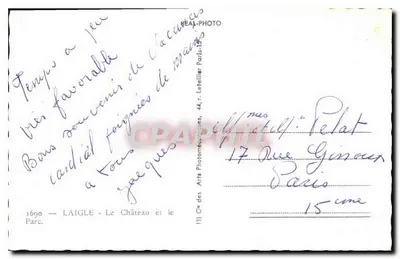 REAL-PHOTO
Temps à peu
très favorable
Bons souvenirs de vacances
cordial poignées de mains
à tous
Jacques
Mmes et Mlle Pelat
17 Rue Ginoux
Paris
15ème
1690 — LAIGLE - Le Château et le
Parc.
Cie des Arts Photomécaniques, 44, r. Letellier Paris-15
CPAPHIL